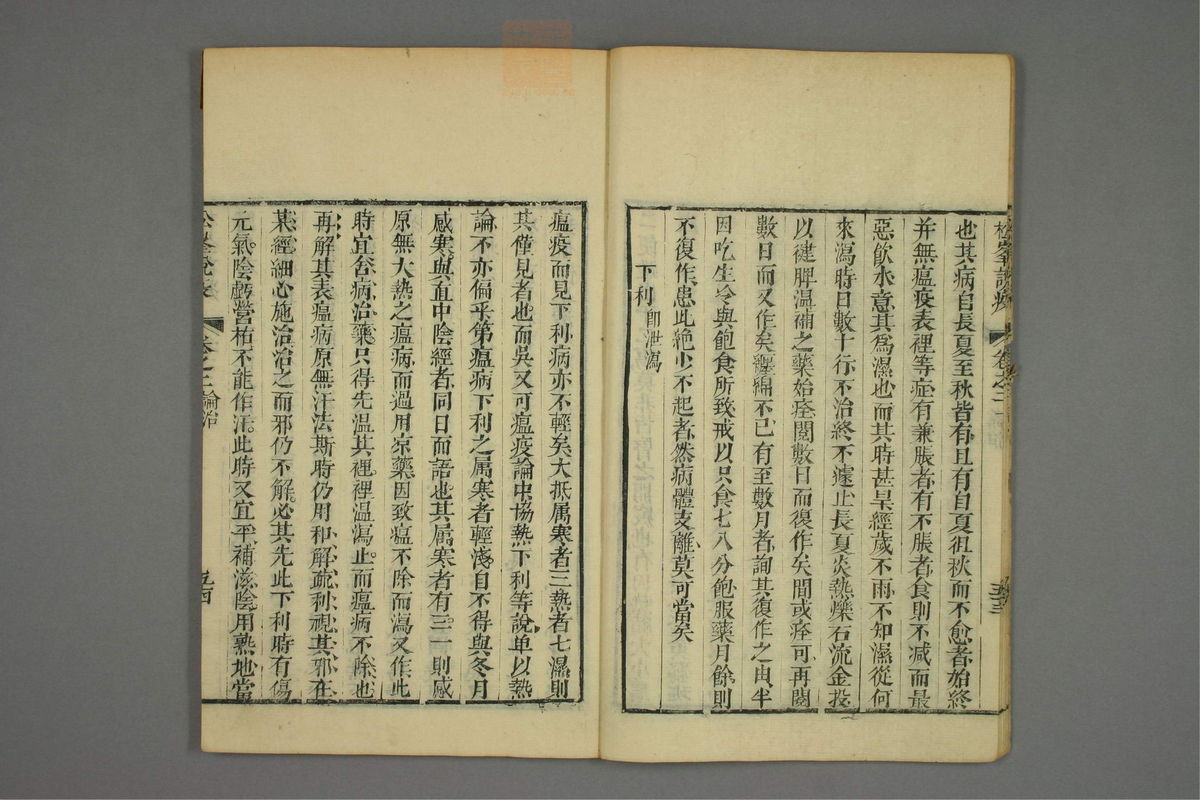 松峯說疫
卷之二
也其病自長夏至秋皆有且有自夏徂秋而不愈者始終
并無瘟疫表裡等症有兼脹者有不脹者食則不减而最
惡飲水意其為濕也而其時甚旱經歲不雨不知濕從何
來瀉時日數十行不治終不遽止長夏炎熱爍石流金投
以健脾温補之藥始痊閱數日而復作矣間或痊可再閱
數日而又作矣纏綿不已有至數月者詢其復作之由半
因吃生冷與飽食所致戒以只食七八分飽服藥月餘則
不復作患此絶少不起者然病體支離莫可當矣
下利即泄瀉
瘟疫而見下利病亦不輕矣大抵属寒者三熱者七濕則
其僅見者也而吳又可瘟疫論中協熱下利等說单以熱
論不亦偏乎第瘟病下利之属寒者輕淺自不得與冬月
感寒與直中陰經者同日而語也其属寒者有三一則感
原無大熱之瘟病而過用凉藥因致瘟不除而瀉又作此
時宜舍病治藥只得先温其裡裡温瀉止而瘟病不除也
再解其表瘟病原無汗法斯時仍用和解疏利視其邪在
某經細心施治治之而邪仍不解必其先此下利時有傷
元氣陰虧營枯不能作汗此時又宜平補滋陰用熟地當
松峯說疫
卷之二
論治
五四